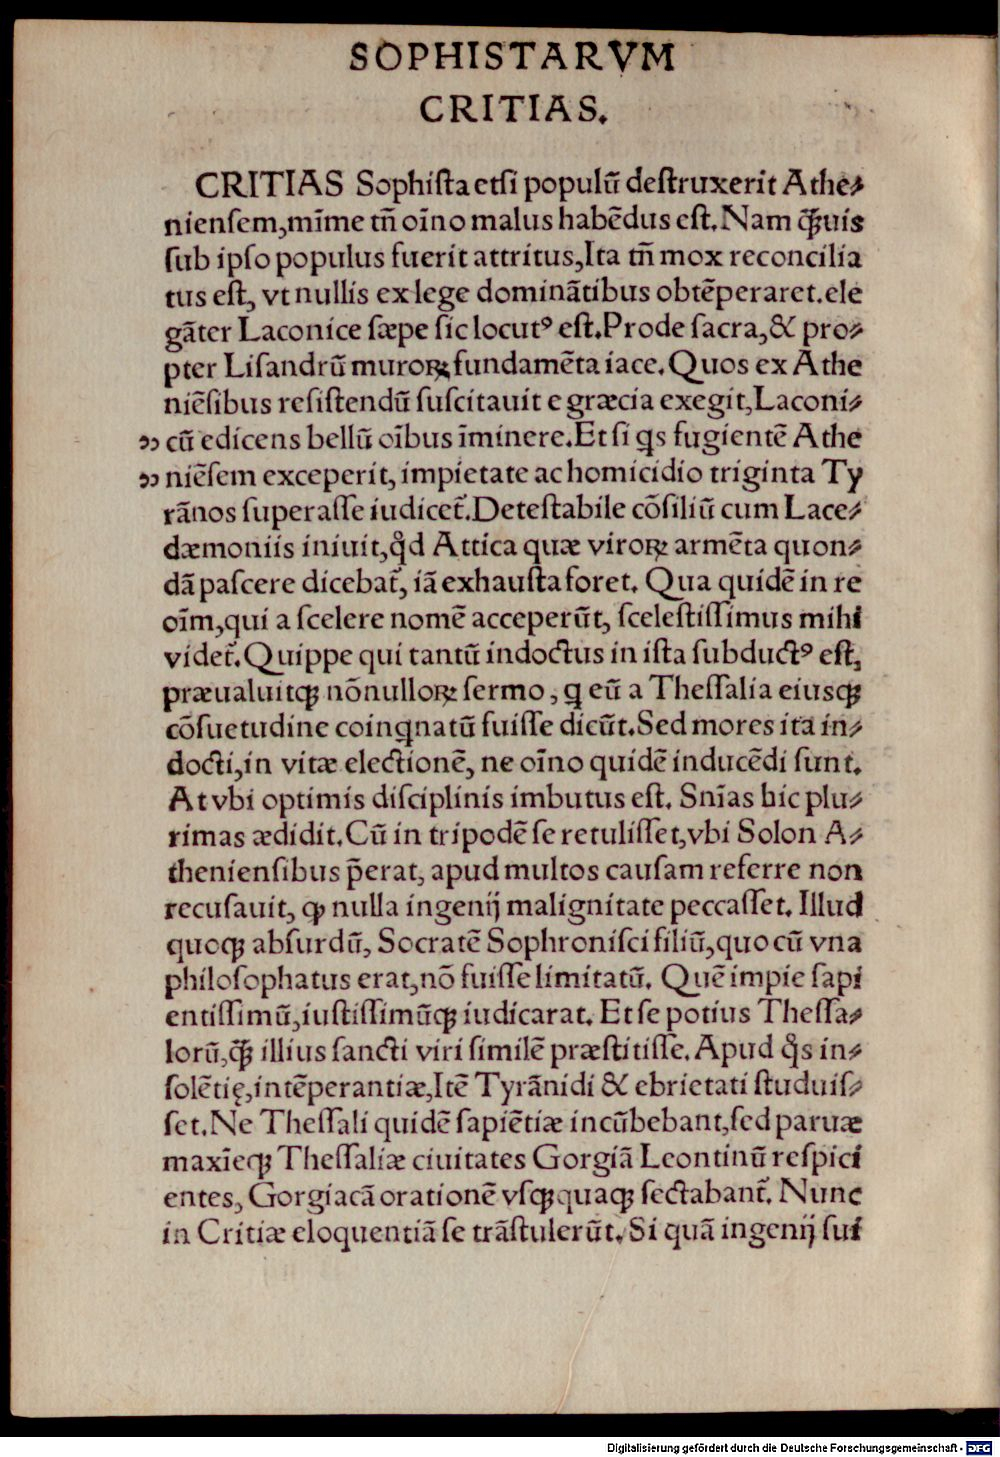 SOPHISTARVM
CRITIAS.
CRITIAS Sophista etsi populũ destruxerit Athe⸗
niensem, mĩme tñ oĩno malus habẽdus est. Nam ꝙ̃uis
sub ipso populus fuerit attritus, Ita tñ mox reconcilia
tus est, vt nullis ex lege dominãtibus obtẽperaret. ele
gãter Laconice sæpe sic locutꝰ est. Prode sacra, & pro⸗
pter Lisandrũ muroꝝ fundamẽta iace. Quos ex Athe
niẽsibus resistendũ suscitauit e græcia exegit, Laconi⸗
„ cũ edicens bellũ oĩbus ĩminere. Et si ꝗs fugientẽ Athe
„ niẽsem exceperit, impietate ac homicidio triginta Ty
rãnos superasse iudicet᷑. Detestabile cõsiliũ cum Lace⸗
dæmoniis iniuit, ꝙ̊d Attica quæ viroꝝ armẽta quon⸗
dã pascere dicebat᷑, iã exhausta foret. Qua quidẽ in re
oĩm, qui a scelere nomẽ acceperũt, scelestissimus mihi
videt᷑. Quippe qui tantũ indoctus in ista subductꝰ est,
præualuitꝙ nõnulloꝝ sermo, ꝗ eũ a Thessalia eiusꝙ
cõsuetudine coinꝗnatũ fuisse dicũt. Sed mores ita in⸗
docti, in vitæ electionẽ, ne oĩno quidẽ inducẽdi sunt.
At vbi optimis disciplinis imbutus est. Snĩas hic plu⸗
rimas ædidit. Cũ in tripodẽ se retulisset, vbi Solon A⸗
theniensibus p̃erat, apud multos causam referre non
recusauit, ꝙ nulla ingenij malignitate peccasset. Illud
quoꝙ absurdũ, Socratẽ Sophronisci filiũ, quo cũ vna
philosophatus erat, nõ fuisse limitatũ. Quẽ impie sapi
entissimũ, iustissimũꝙ iudicarat. Et se potius Thessa⸗
lorũ, ꝙ̃ illius sancti viri similẽ præstitisse. Apud ꝗ̊s in⸗
solẽtię, intẽperantiæ, Itẽ Tyrãnidi & ebrietati studuis⸗
set. Ne Thessali quidẽ sapiẽtiæ incũbebant, sed paruæ
maxĩeꝙ Thessaliæ ciuitates Gorgiã Leontinũ respici
entes, Gorgiacã orationẽ vsꝙquaꝙ sectabant᷑. Nunc
in Critiæ eloquentiã se trãstulerũt. Si quã ingenij sui
Digitalisierung gefördert durch die Deutsche Forschungsgemeinschaft - DFG